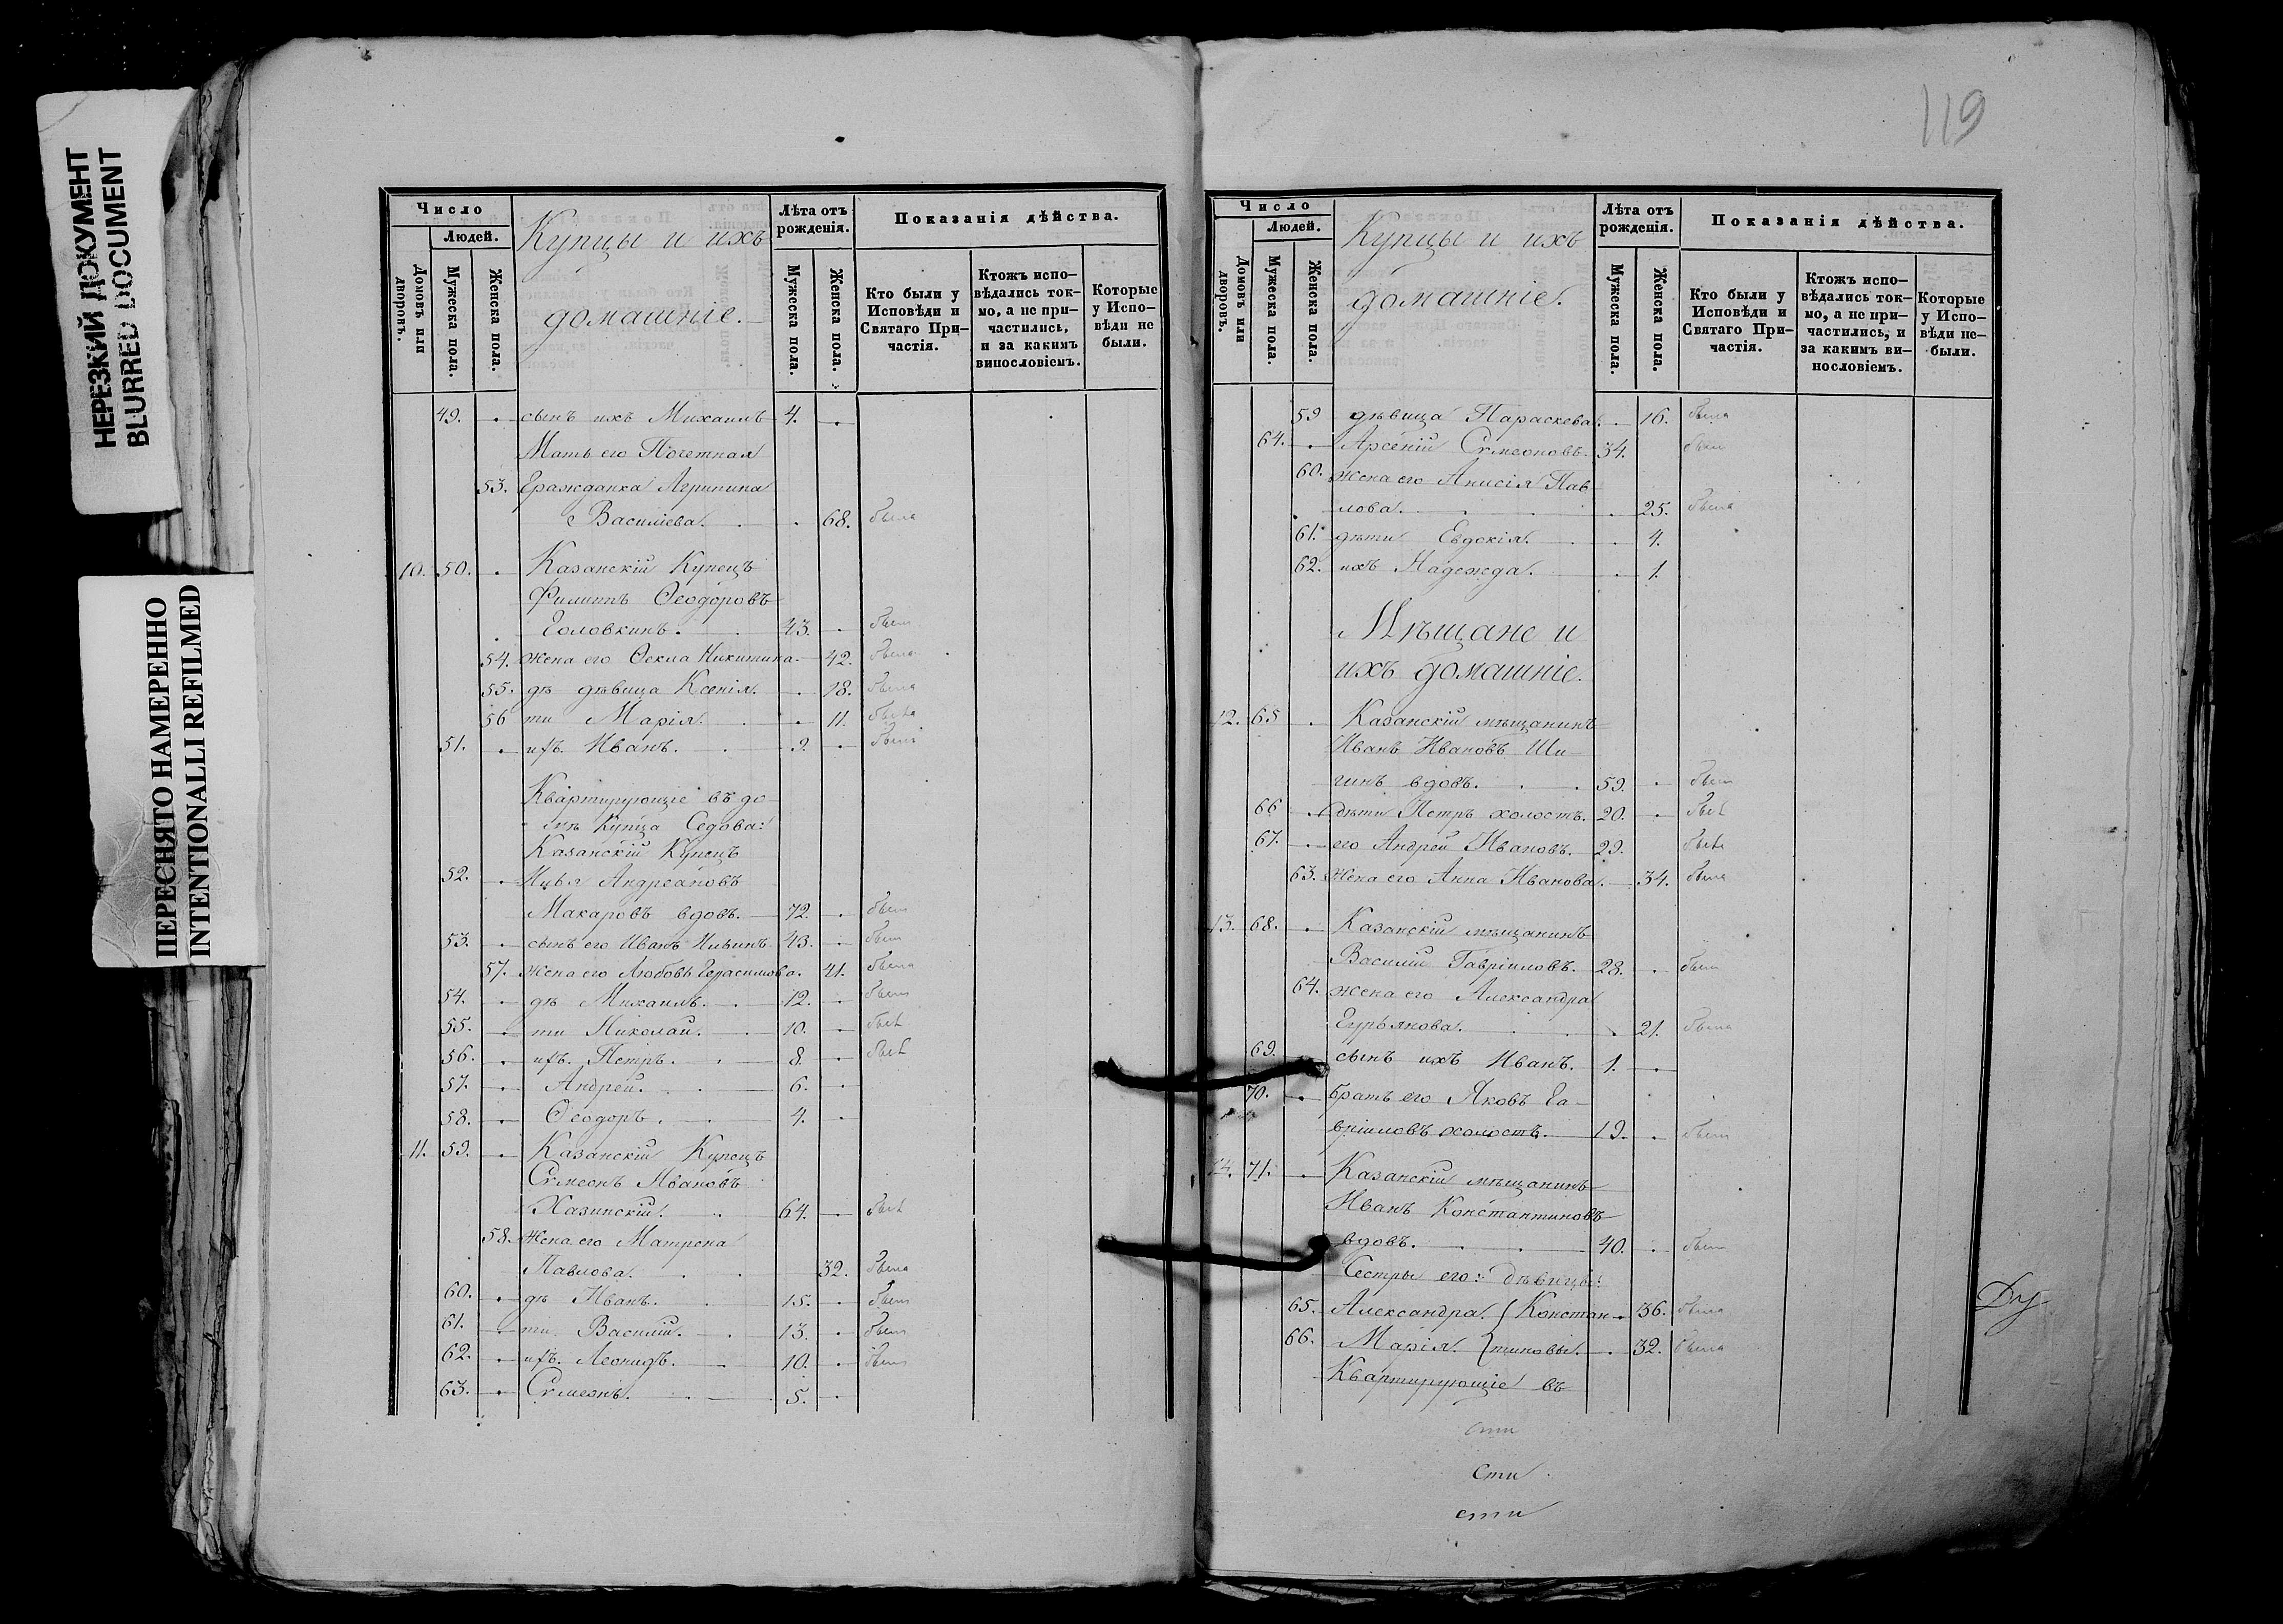 НЕРЕЗКИЙ ДОКУМЕНТ
BLURRED DOCUMENT
ПЕРЕСНЯТО НАМЕРЕННО
INTENTIONALLI REFILMED
Число
Людей.
Домовъ или дворовъ.
Мужеска пола.
Женска пола.
Купцы и ихъ
домашніе.
Лѣта отъ рожденія.
Мужеска пола.
Женска пола.
Показанія дѣйства.
Кто были у Исповѣди и Святаго При-частія.
Ктожъ испо-вѣдались ток-мо, а не при-частились, и за какимъ винословіемъ.
Которые у Испо-вѣди не были.
49. сынъ ихъ Михаилъ 4.
Мать его Почетная
53. Гражданка Агрипина
Василіева. 68. была
10. 50. Казанскій Купецъ
Филиппъ Ѳеодоровъ
Головкинъ. 43. былъ
54. жена его Ѳекла Никитина. 42. была
55. дѣ дѣвица Ксенія. 18. была
56 ти Марія. 11. была
51. ихъ. Иванъ. 9. былъ
Квартирующіе въ до-
мѣ Купца Седова:
Казанскій Купецъ
52. Илья Андреановъ
Макаровъ вдовъ. 72. былъ
53. сынъ его Иванъ Ильинъ 43. былъ
57. жена его Любовь Герасимова. 41. была
54. дѣ Михаилъ. 12. былъ
55. ти Николай. 10. былъ
56. ихъ. Петръ. 8. былъ
57. Андрей. 6.
58. Ѳеодоръ. 4.
11. 59. Казанскій Купецъ
Сѵмеонъ Ивановъ
Хазинскій. 64. былъ
58. Жена его Матрена
Павлова. 32. была
60. дѣ Иванъ. 15. былъ
61. ти. Василій. 13. былъ
62. ихъ. Леонидъ. 10. былъ
63. Сѵмеонъ. 5.
119
Число
Людей.
Домовъ или дворовъ.
Мужеска пола.
Женска пола.
Купцы и ихъ
домашніе.
Лѣта отъ рожденія.
Мужеска пола.
Женска пола.
Показанія дѣйства.
Кто были у Исповѣди и Святаго При-частія.
Ктожъ испо-вѣдались ток-мо, а не при-частились, и за какимъ ви-нословіемъ.
Которые у Испо-вѣди не-были.
59 дѣвица Параскева. 16. была
64. Арсеній Сѵмеоновъ. 34. былъ
60. жена его Анисія Пав-
лова. 25. была
61. дѣти Евдокія. 4.
62. ихъ Надежда. 1.
Мѣщане и
ихъ домашніе.
12. 65 Казанскій мѣщанинъ
Иванъ Ивановъ Ши-
гинъ вдовъ. 59. былъ
66 дѣти Петръ холостъ. 20. былъ
67. его Андрей Ивановъ. 29. былъ
63. Жена его Анна Иванова. 34. была
13. 68. Казанскій мѣщанинъ
Василій Гавріиловъ. 28. былъ
64. жена его Александра
Гурьянова. 21. была
69. сынъ ихъ Иванъ. 1.
70. братъ его Яковъ Га-
вріиловъ холостъ. 19. былъ
14. 71. Казанскій мѣщанинъ
Иванъ Константиновъ
вдовъ. 40. былъ
Сестры его: дѣвицы:
65. Александра. Констан- 36. была
66. Марія. тиновы. 32. была
Квартирующіе въ
сти
сти
сти